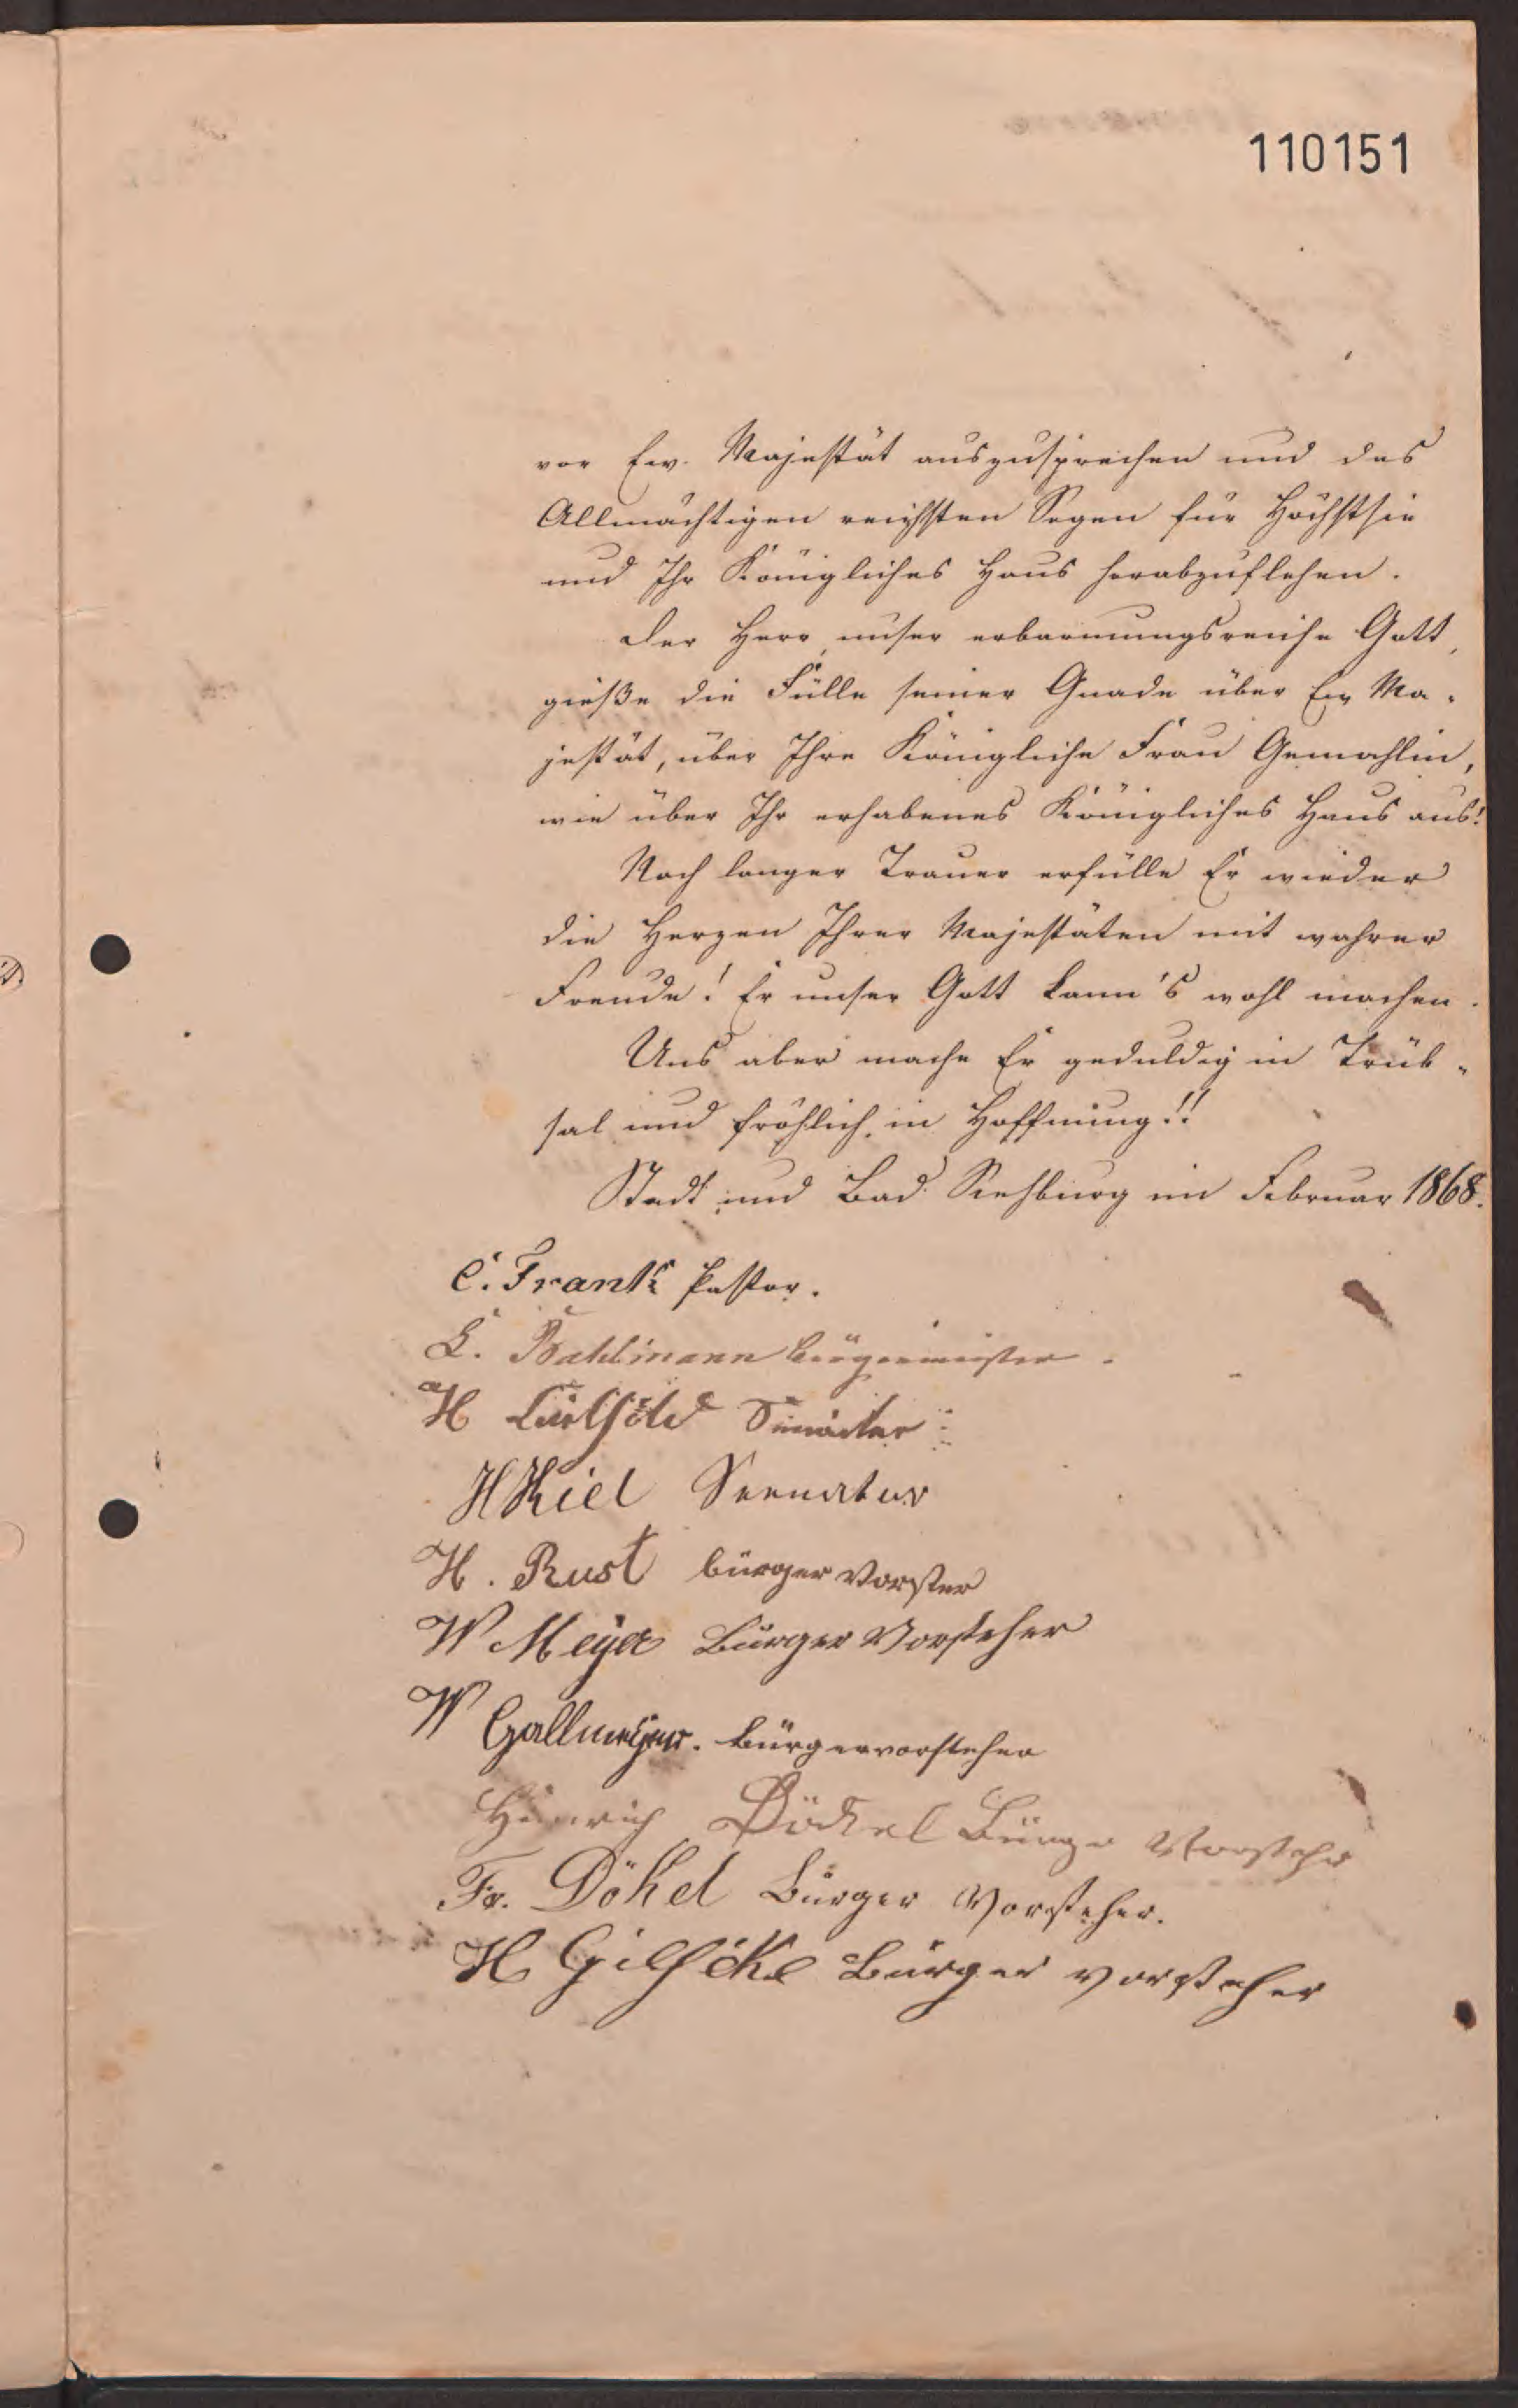 110151
vor Ew. Majestät auszusprechen und des
Allmächtigen reichsten Segen für Höchstsie
und Ihr Königliches Haus herabzuflehen.
Der Herr, unser erbarmungsreiche Gott,
gieße die Fülle seiner Gnade über Ew Ma-
jestät, über Ihre Königliche Frau Gemahlin,
wie über Ihr erhabenes Königliches Haus aus!
Nach langer Trauer erfülle Er wieder
die Herzen Ihrer Majestäten mit wahrer
Freude! Er unser Gott kann's wohl machen.
Uns aber mache Er geduldig in Trüb-
sal und fröhlich in Hoffnung!!
Stadt und Bad Rehburg im Februar 1868.
C. Frank Pastor.
Bahlmann Bürgermeister.
H Senator
H Kiel Seenatur
H. Rust bürger Vorster
W Meyer Bürger Vorsteher
W Gallmeyer. Bürgervorsteher
Heinrich Dökel Bürge Vorstehr
Fr. Dökel Bürger Vorsteher.
H Bürger vorsteher